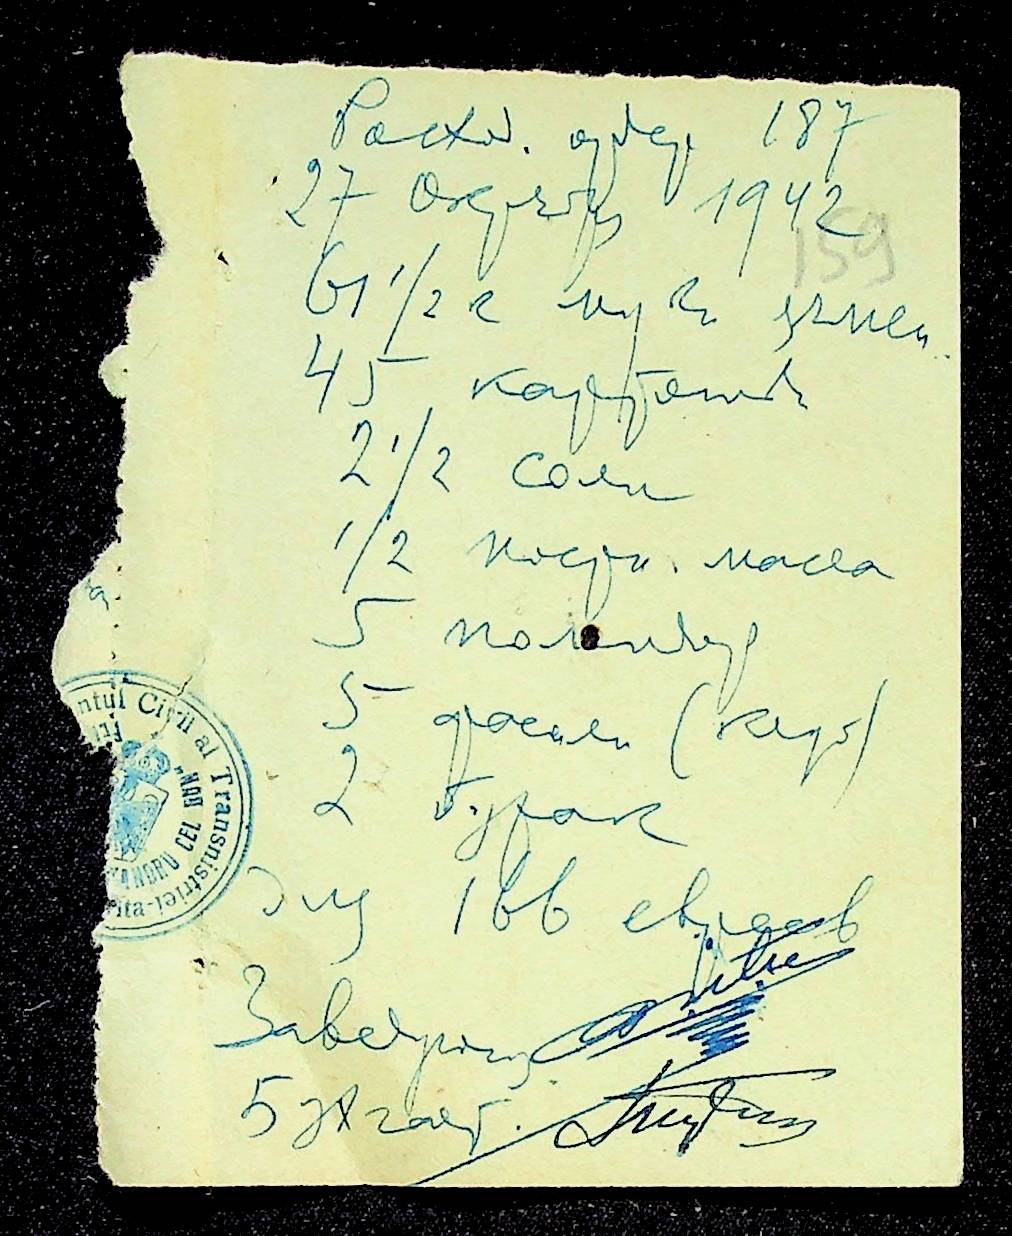 Расход. ордер 187
27 Октября 1942
159
61 1/2 к муки ячмен.
45 картошки
2 1/2 соли
1/2 постн. масла
5 помидор
5 фасоли
2 бурак
Для 166 евреев
Заведующ
Бухгалт.
ntul Civil al Transnistriei
CEL